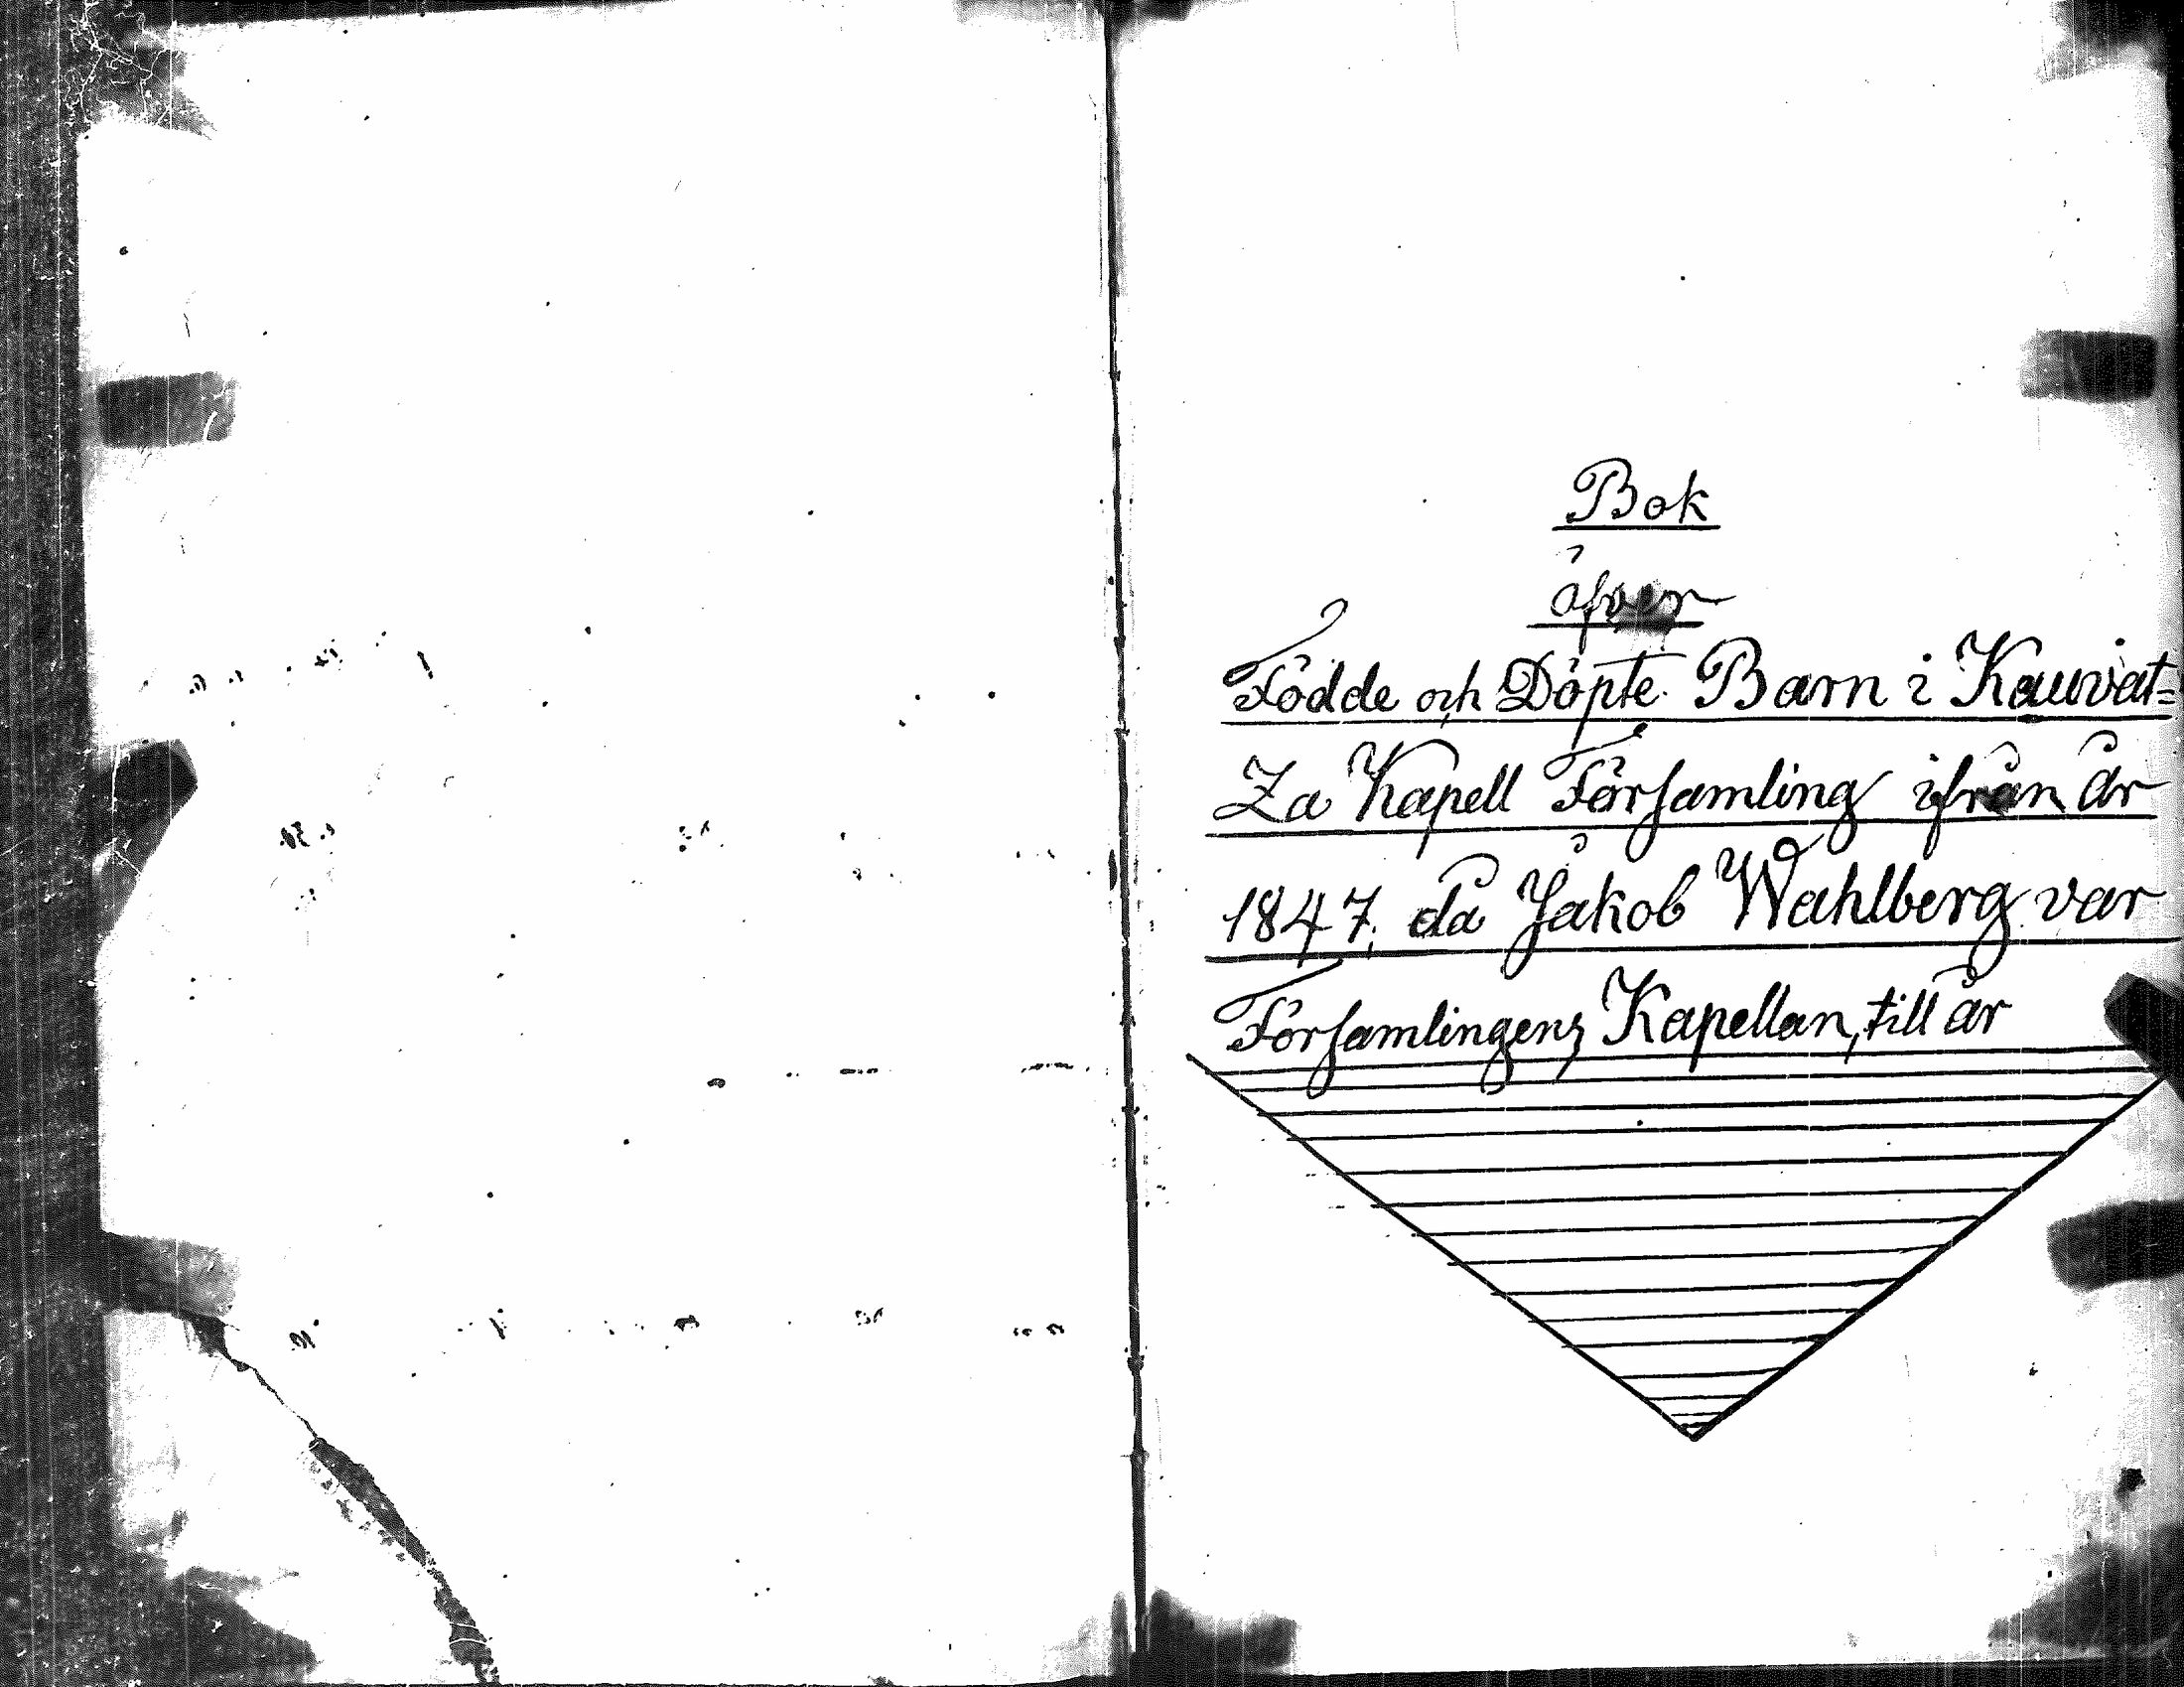 Bok
öfver
Födde och Döpte Barn i Kauvat=
Za Kapell Församling ifrån år
1847, då Jakob Wahlberg var
Församlingens Kapellan, till år